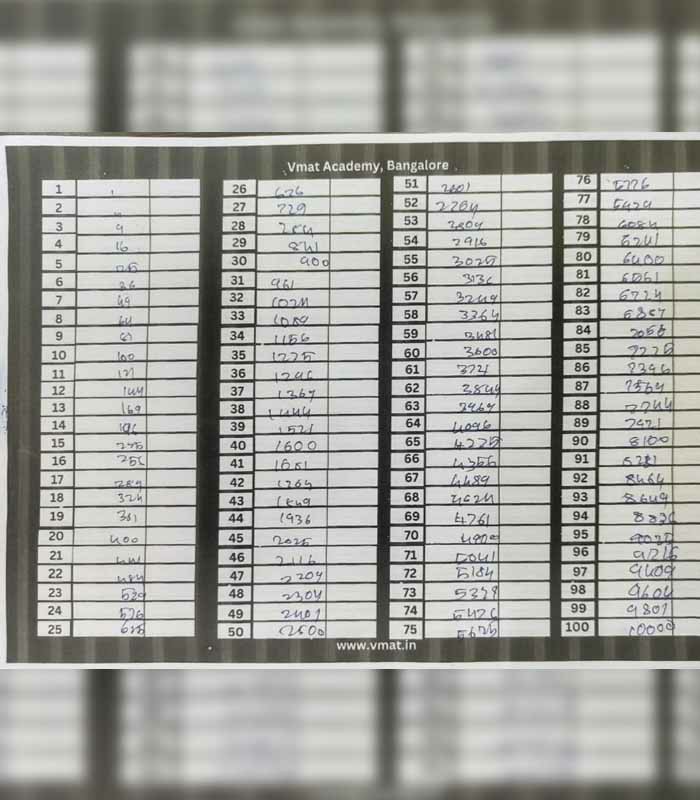 Vmat Academy, Bangalore
1 1
2
3 9
4 16
5 25
6 36
7 49
8 64
9 81
10 100
11 121
12 144
13 169
14 196
15 225
16 256
17 289
18 324
19 361
20 400
21 441
22 484
23 529
24 576
25 625
26 676
27 729
28 784
29 841
30 900
31 961
32 1024
33 1089
34 1156
35 1225
36 1296
37 1369
38 1444
39 1521
40 1600
41 1681
42 1764
43 1849
44 1936
45 2025
46 2116
47 2209
48 2304
49 2401
50 2500
51 2601
52 2704
53 2809
54 2916
55 3025
56 3136
57 3249
58 3364
59 3481
60 3600
61 3721
62 3844
63 3969
64 4096
65 4225
66 4356
67 4489
68 4624
69 4761
70 4900
71 5041
72 5184
73 5329
74 5476
75 5625
76 5776
77 5929
78 6084
79 6241
80 6400
81 6561
82 6724
83
84 7056
85 7225
86 7396
87 7569
88 7744
89 7921
90 8100
91 8281
92 8464
93 8649
94 8836
95 9025
96 9216
97 9409
98 9604
99 9801
100 10000
www.vmat.in